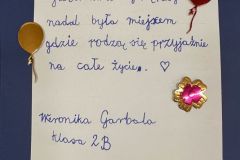 nadal była miejscem
gdzie rodzą się przyjaźnie
na całe życie. ♡
Weronika Garbala
klasa 2B